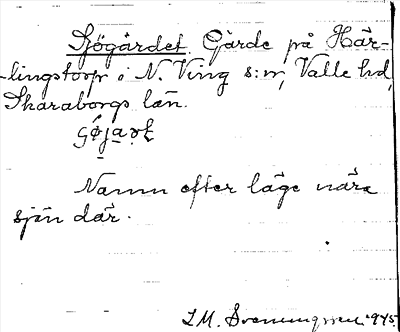 Sjögärdet. Gärde på Här-
lingstorp i N. Ving s:n, Valle hd,
Skaraborgs län.
Namn efter läge nära
sjön där.
I. M. Svenungsson 1945